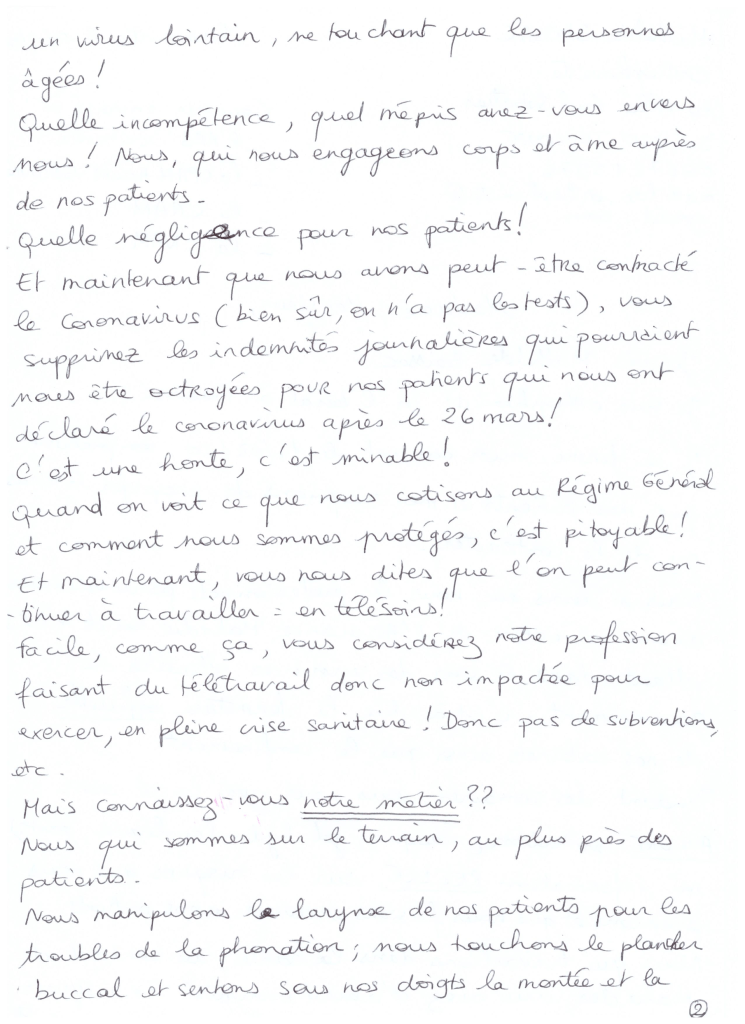 un virus lointain, ne touchant que les personnes
âgées!
Quelle incompétence, quel mépris avez-vous envers
nous! Nous, qui nous engageons corps et âme auprès
de nos patients.
Quelle négligence pour nos patients!
Et maintenant que nous avons peut-être contracté
le coronavirus (bien sûr, on n'a pas les tests), vous
supprimez les indemnités journalières qui pourraient
nous être octroyées pour nos patients qui nous ont
déclaré le coronavirus après le 26 mars!
C'est une honte, c'est minable!
Quand on voit ce que nous cotisons au Régime Général
et comment nous sommes protégés, c'est pitoyable!
Et maintenant, vous nous dites que l'on peut con-
-tinuer à travailler = en télésoins!
Facile, comme ça, vous considérez notre profession
faisant du télétravail donc non impactée pour
exercer, en pleine crise sanitaire! Donc pas de subventions,
etc.
Mais connaissez-vous notre métier??
Nous qui sommes sur le terrain, au plus près des
patients.
Nous manipulons le larynx de nos patients pour les
troubles de la phonation; nous touchons le plancher
buccal et sentons sous nos doigts la montée et la
2